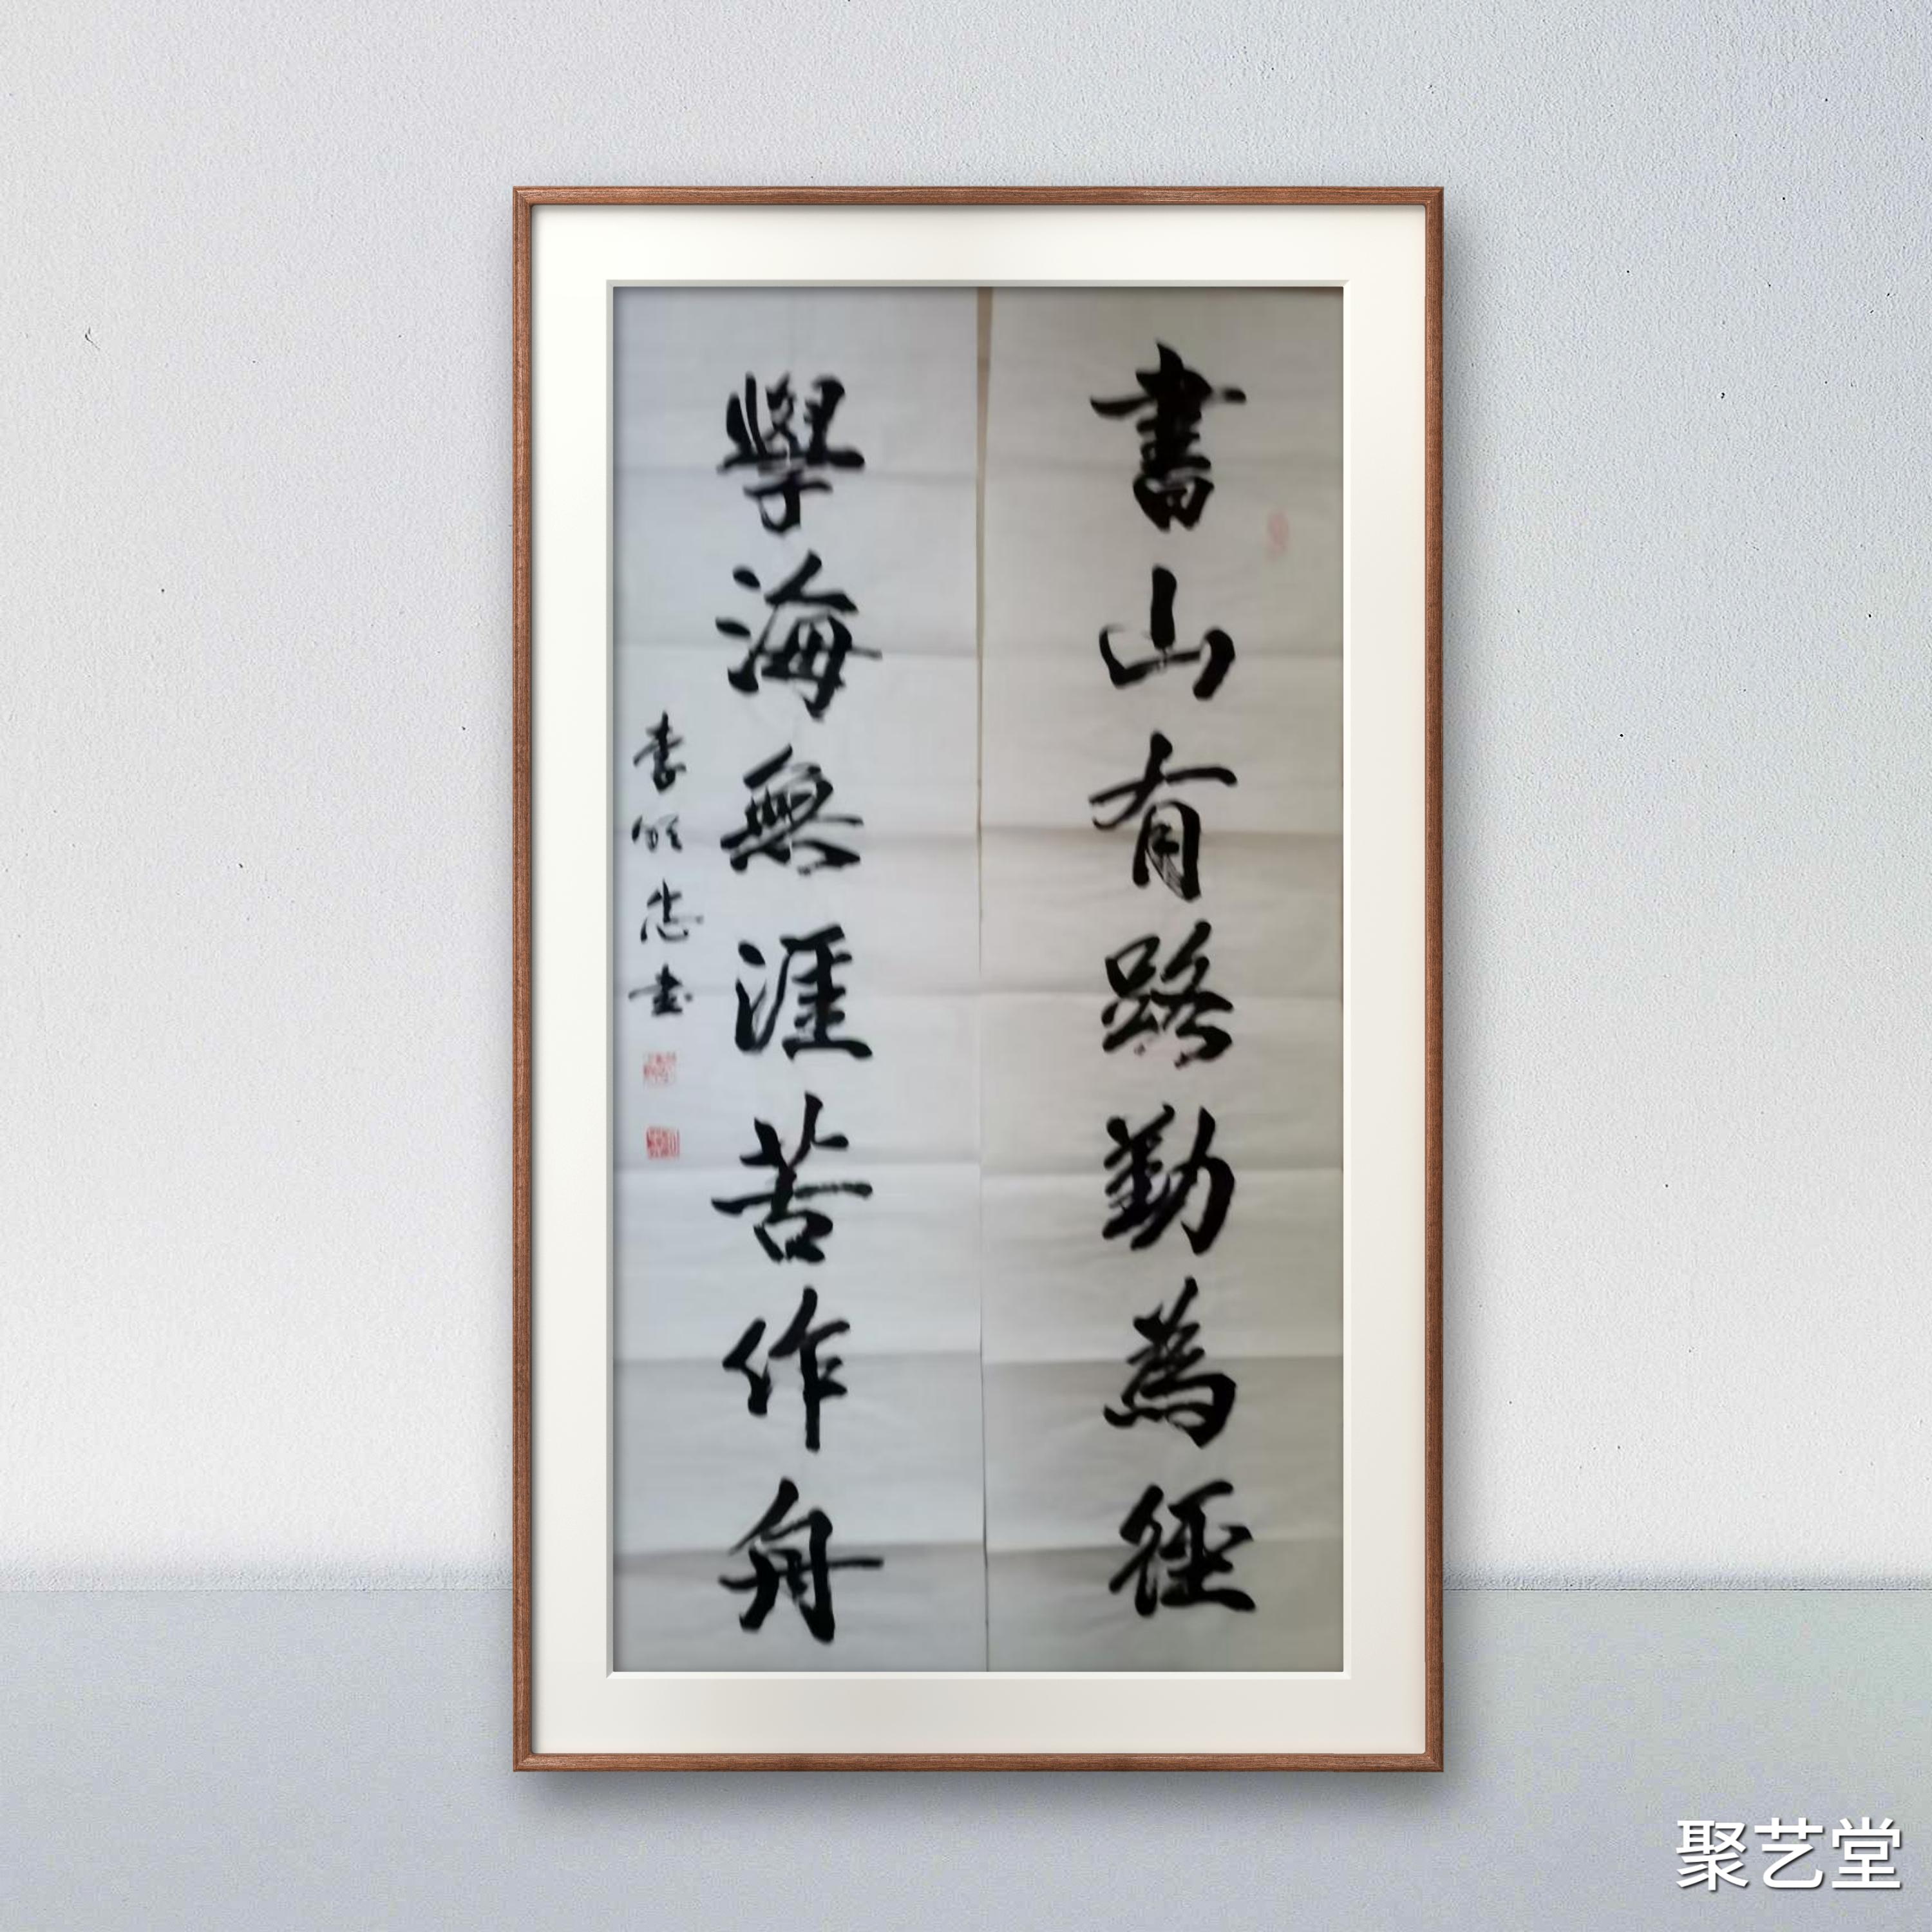 書山有路勤為徑
學海無涯苦作舟
书
聚艺堂